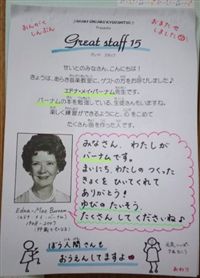 おんがく
しんぶん
おまたせ
しました
Presents
Great staff 15
せいとのみなさん、こんにちは！
きょうは、あらき音楽教室に、ゲストの方をお呼びしました♪
エドナ・メイ・バーナム先生です。
バーナムの本を勉強している、生徒さんもいますね。
楽しく練習ができるようにと、心をこめて
たくさん曲を作った人です。
みなさん、わたしが
バーナムです。
まいにち、わたしの つくった
きょくを ひいてくれて
ありがとう！
ゆびの たいそう、
たくさん してくださいね♪
Edna-Mae Burnam
1907-2007
ぼう人間さんも
おうえんしてますよ
おわり